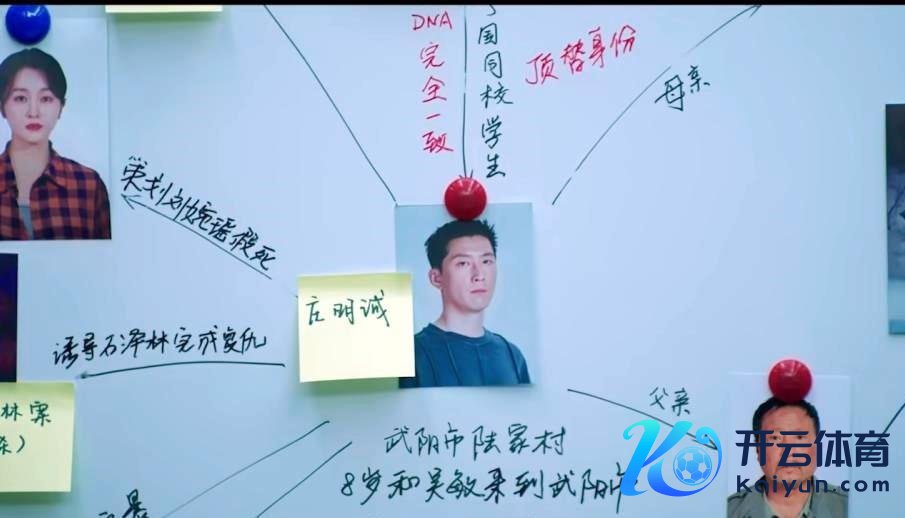 DNA
完全一致
国同校学生
顶替身份
母亲
策划刘婉瑶假死
庄明诚
诱导石泽林完成复仇
林案
父亲
武阳市陆家村
8岁和吴敏来到武阳市
开云体育
Kaiyun.com